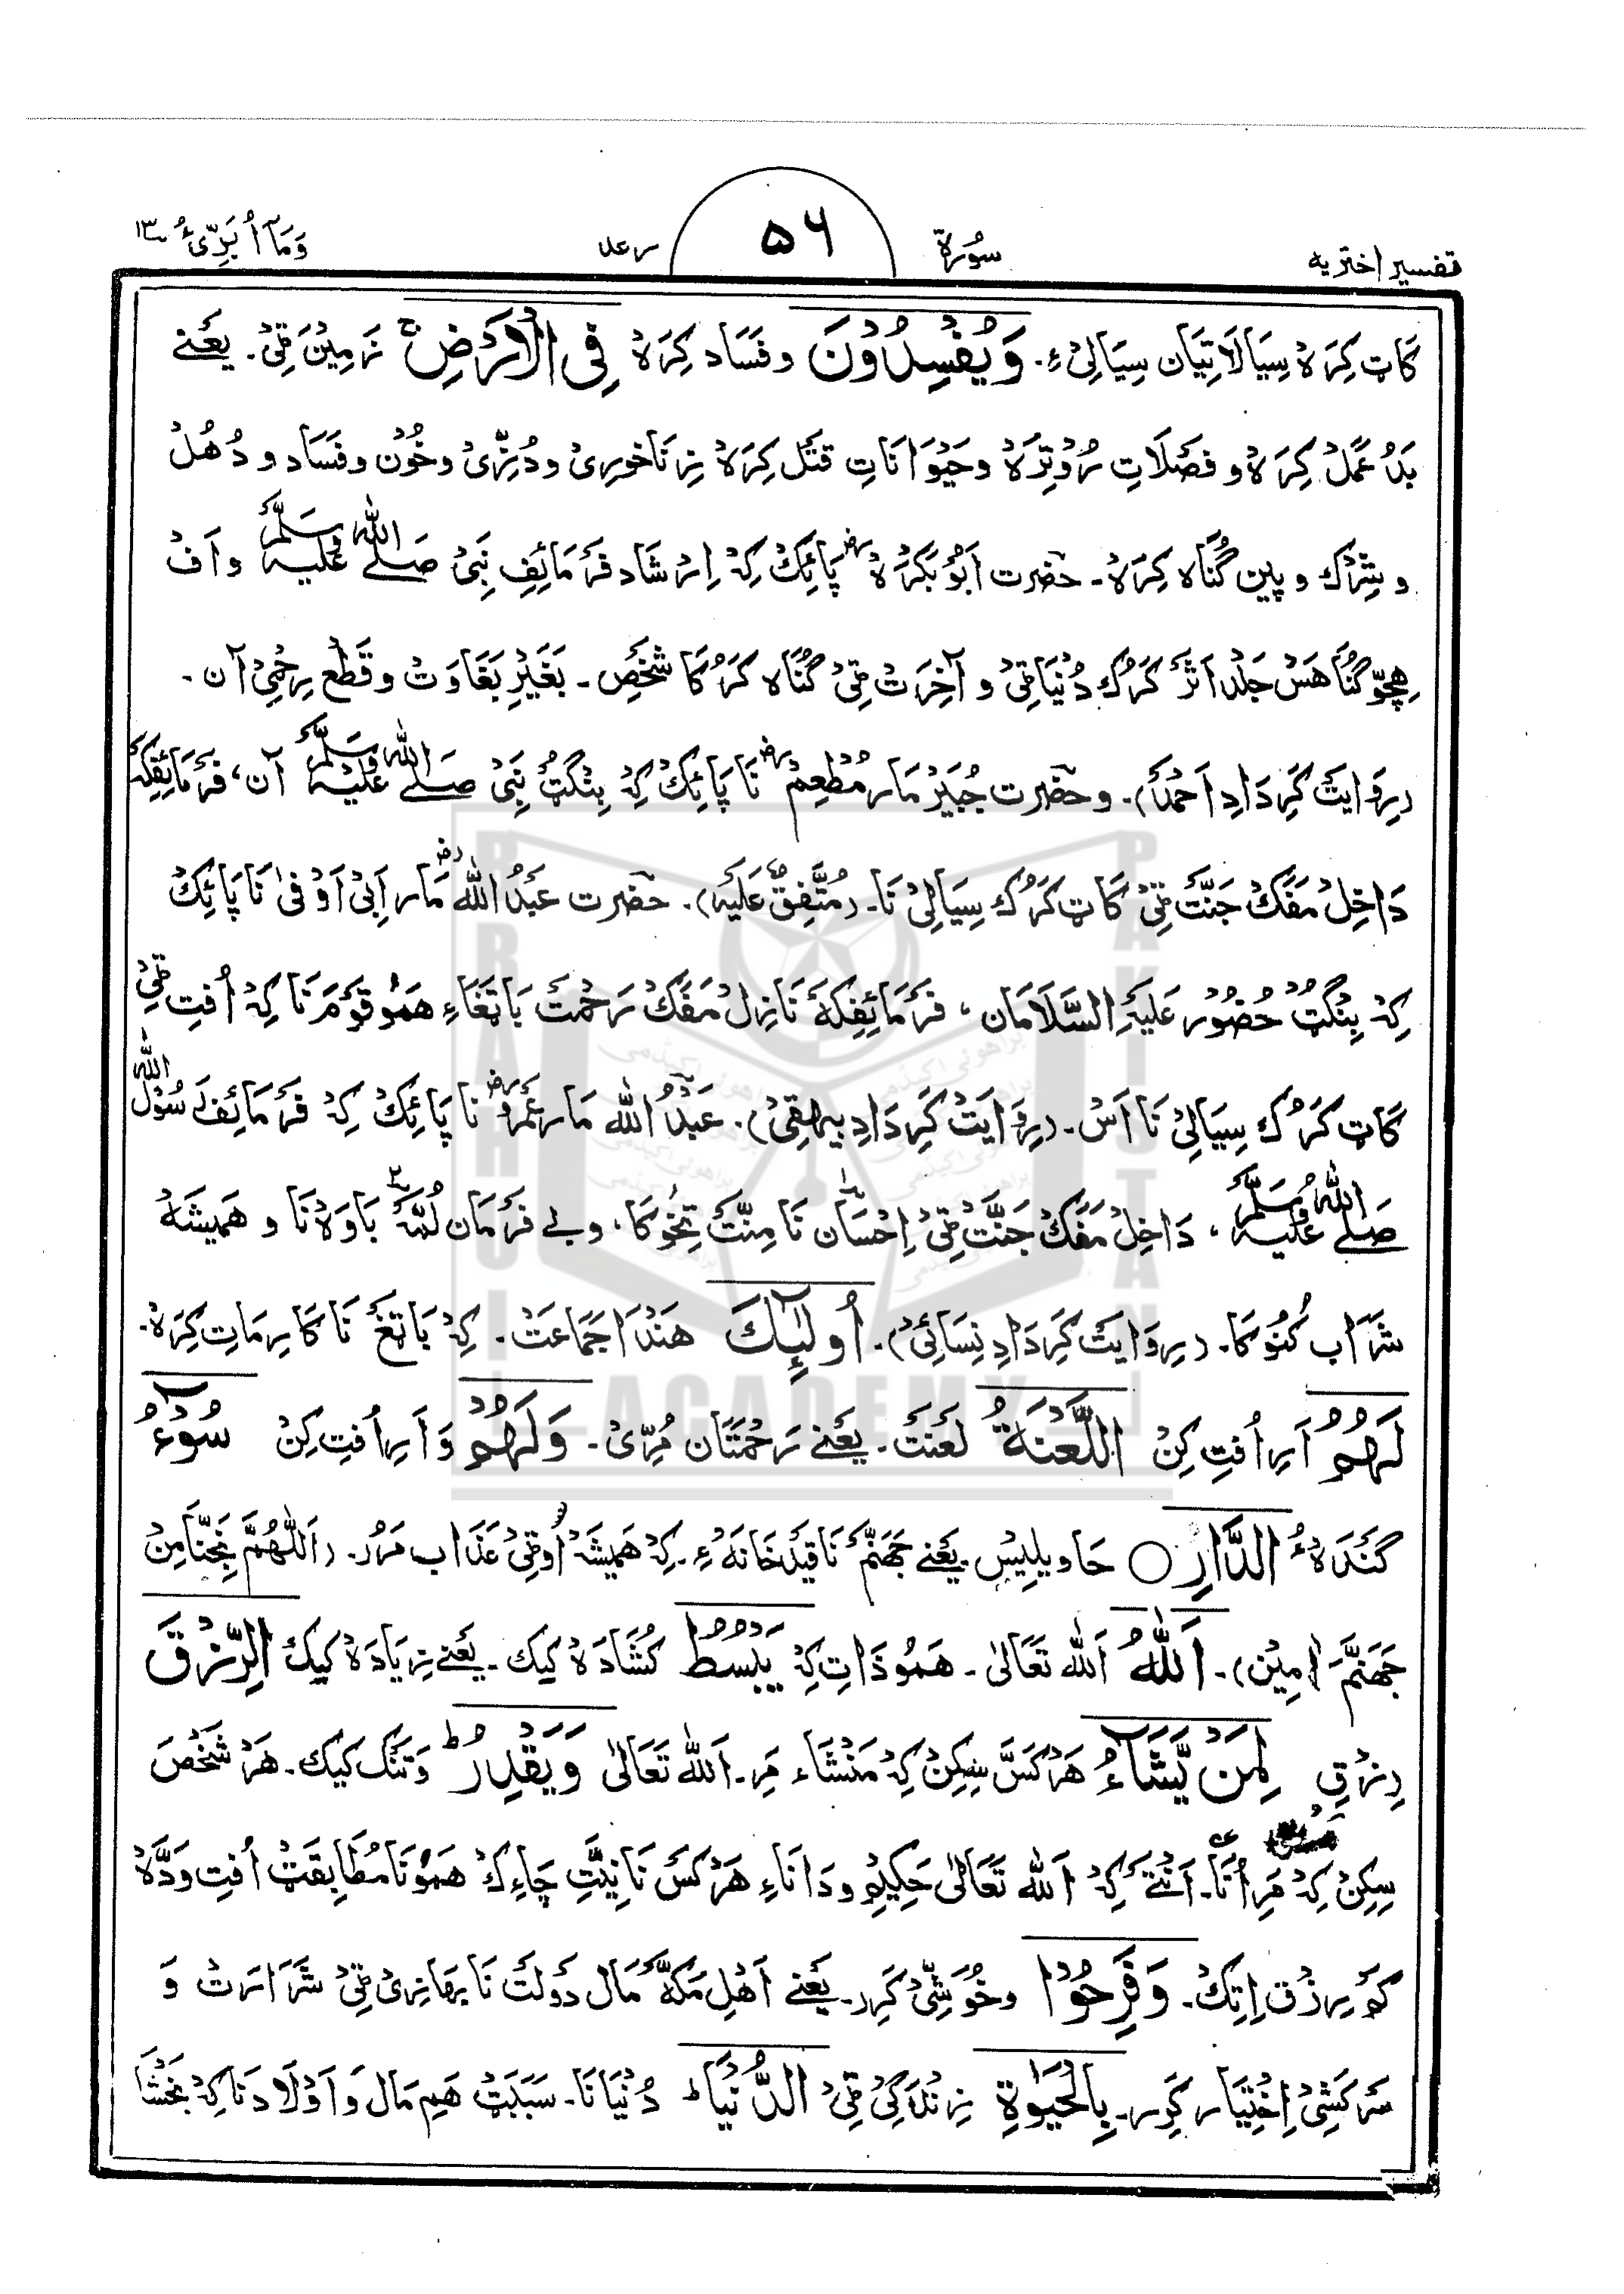 تفسير اختريه سُورَة ۵۶ رعد وَمَآ اُبَرِّئُ ۱۳
كَاٹ كِرَہْ سِيَالَاتِيَان سِيَالِیْ ءِ. وَيُفْسِدُوْنَ و فَسَاد كِرَہْ فِی الْاَرْضِ زَمِيْنَ ٹِیْ. يَعْنے
بَدُ عَمَلْ كِرَہْ و فَصَلَاتِ رُوْتِرَہْ وحَيْوَانَاتِ قَتَل كِرَہْ زِنَاخورِیْ و دُزِّیْ و خُوْن و فَسَاد و دُهُلْ
و شِرْك و پين گُنَاه كِرَہْ۔ حضرت اَبُوْبَكْرَہْ رض پَائِكْ كِہْ اِرْشَاد فَرْمَائِفِ نَبِیْ صَلَے اللہ عَلَيْہِ وَسَلَّمْ و اَفْ
هِچّو گُنَاهَسْ جَلْد اَثَرْ كَرُك دُنْيَا ٹِیْ و آخِرَتْ ٹِیْ گُنَاه كَرُكَا شَخْصِ۔ بَغَيْرِ بَغَاوَتْ و قَطْع رِحْمِیْ آن.
(رِوَايَتْ كَرِ دَادِ اَحْمَدْ). و حضرت جُبَيْرْ مَار مُطْعِمْ رض نَا پَائِكْ كِہْ بِنْگُٹْ نَبِیْ صَلَے اللہ عَلَيْہِ وَسَلَّمْ آن، فَرْمَائِفِكَہْ
دَاخِلْ مَفَكْ جَنَّتْ ٹِیْ كَاٹ كَرُك سِيَالِیْ نَا۔ (مُتَّفِقْ عَلَيْہ). حضرت عَبْدُ اللہ رض مَار اَبِیْ اَوْفٰی نَا پَائِكْ
كِہْ بِنْگُٹْ حُضُوْر عَلَيْہِ السَّلَامَان، فَرْمَائِفِكَہْ نَازِلْ مَفَكْ رَحْمَتْ بَاتَغَاءِ هَمُو قَوْمَ نَا كِہْ اُفتِ ٹِیْ
كَاٹ كَرُك سِيَالِیْ نَا اَسْ۔ (رِوَايَتْ كَرِ دَادِ بَيهَقِیْ). عَبْدُ اللہ مَار عَمْرو رض نَا پَائِكْ كِہْ فَرْمَائِف رَسُوْل اللہ
صَلَے اللہ عَلَيْہِ وَسَلَّمْ، دَاخِلْ مَفَكْ جَنَّتْ ٹِیْ اِحْسَان نَا مِنَّتْ تِخُوكَا، و بے فَرْمَان لُمَّہْ بَاوَہْ نَا و هَمِيشَہْ
شَرَاب كُنُوكَا۔ (رِوَايَتْ كَرِ دَادِ نِسَائِیْ). اُولٰٓئِكَ هَنْدَا جَمَاعَتْ۔ كِہْ بَاتَغْ نَا كَارِمَاتِ كِرَہْ.
لَهُمُ اَرِ اُفتِ كِنْ اللَّعْنَةُ لَعْنَتْ۔ يَعْنے رَحْمَتَان مُرِّیْ۔ وَلَهُمْ وَ اَرِ اُفتِ كِنْ سُوْٓءُ
گَنْدَہْ ءُ الدَّارِ ○ حَاويلِيس۔ يَعْنے جَهَنَّمْ نَا قَيْد خَانَہْ ءِ۔ كِہْ هَمِيشَہْ اُوٹِیْ عَذَاب مَرُر۔ (اَللّٰهُمَّ نَجِّنَا مِنْ
جَهَنَّمَ اٰمِيْن)۔ اَللّٰهُ اَللہ تَعَالٰی۔ هَمُو ذَاتِ كِہْ يَبْسُطُ كُشَادَہْ كيك۔ يَعْنے زِيَادَہْ كيك الرِّزْقَ
رِزْقِ لِمَنْ يَّشَآءُ هَرْكَسْ سِكِنْ كِہْ مَنْشَاء مَرِ۔ اَللہ تَعَالٰی وَيَقْدِرُ ط وَتَنْك كيك۔ هَرْ شَخْصَ
سِكِنْ كِہْ مَرِ اُنَا۔ اَنْتَے كِہْ اَللہ تَعَالٰی حَكِيْم و دَانَاءِ هَرْكَسْ نَا نِيَّتِ چَاءِك هَمُوْنَا مُطَابِقَتْ اُفتِ وَدَّہْ
كَمْ رِزْق اِتِكْ۔ وَفَرِحُوْا و خُوشِّیْ كَرِر۔ يَعْنے اَهْلِ مَكَّہْ مَال دَوْلَتْ نَا بهَازِیْ ٹِیْ شَرَارَتْ وَ
سَركَشِیْ اِخْتِيَار كَرِر۔ بِالْحَيٰوةِ زِنْدَگِیْ ٹِیْ الدُّنْيَا ط دُنْيَا نَا۔ سَبَبَتْ هَمِ مَال وَ اَوْلَاد نَا كِہْ بَخْشَا